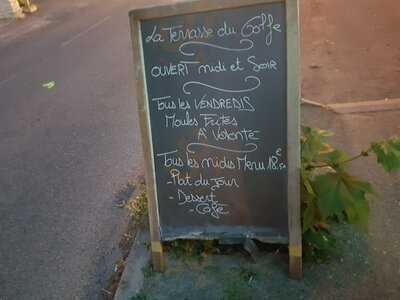 La Terrasse du Golfe
OUVERT midi et Soir
Tous les VENDREDIS
Moules Frites
A Volonté
Tous les midis Menu 18.€
- Plat du jour
- Dessert
- Café